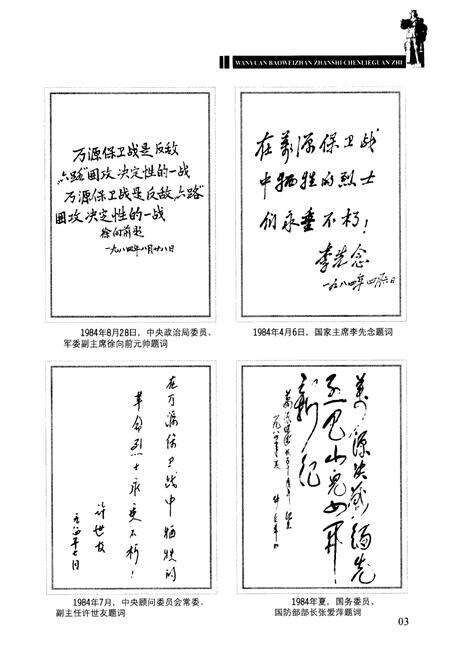 WANYUAN BAOWEIZHAN ZHANSHI CHENLIEGUAN ZHI
万源保卫战是反敌
“六路”围攻决定性的一战
万源保卫战是反敌“六路”
围攻决定性的一战
徐向前题
一九八四年八月廿八日
1984年8月28日，中央政治局委员、
军委副主席徐向前元帅题词
在万源保卫战
中牺牲的烈士
们永垂不朽！
李先念
一九八四年四月六日
1984年4月6日，国家主席李先念题词
在万源保卫战中牺牲的
革命烈士永垂不朽！
许世友
一九八四年七月
1984年7月，中央顾问委员会常委、
副主任许世友题词
1984年夏，国务委员、
国防部部长张爱萍题词
03